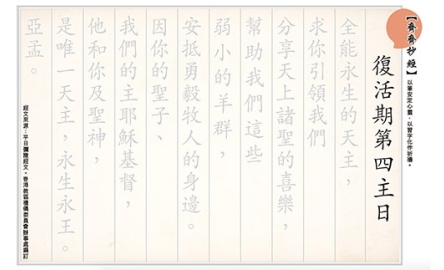 【齊齊抄經】
以筆安定心靈，以習字化作祈禱。
復活期第四主日
全能永生的天主，
求你引領我們
分享天上諸聖的喜樂，
幫助我們這些
弱小的羊群，
安抵勇毅牧人的身邊。
因你的聖子、
我們的主耶穌基督，
他和你及聖神，
是唯一天主，永生永王。
亞孟。
經文來源：平日彌撒經文，香港教區禮儀委員會辦事處編訂